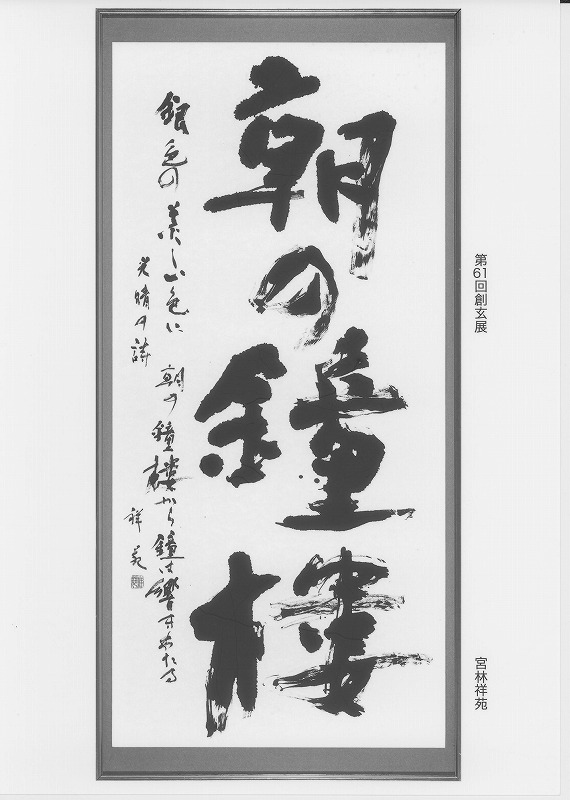 第61回創玄展
宮林祥苑
朝の鐘楼
銀色の美しい色に 朝の鐘楼から鐘は響きわたる
光晴の詩
祥苑